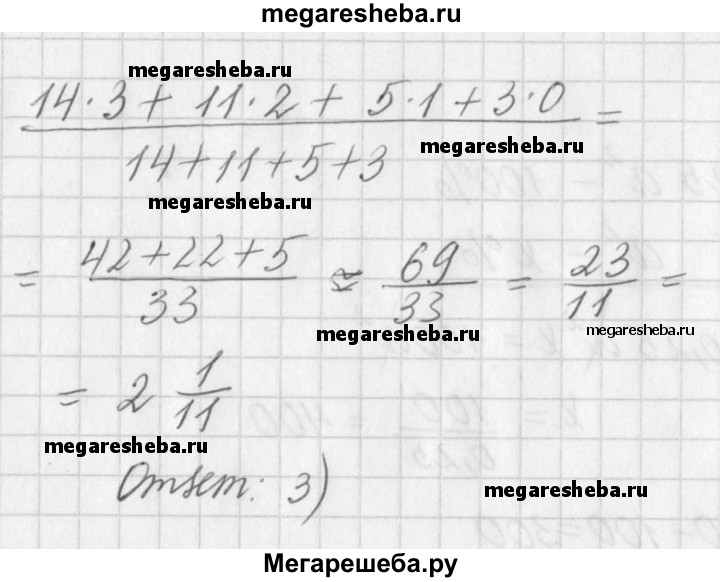 megaresheba.ru
megaresheba.ru
14·3 + 11·2 + 5·1 + 3·0 =
14+11+5+3
megaresheba.ru
megaresheba.ru
= 42+22+5 / 33 ≈ 69 / 33 = 23 / 11 =
megaresheba.ru
megaresheba.ru
= 2 1/11
megaresheba.ru
Ответ: 3)
megaresheba.ru
Мегарешеба.ру